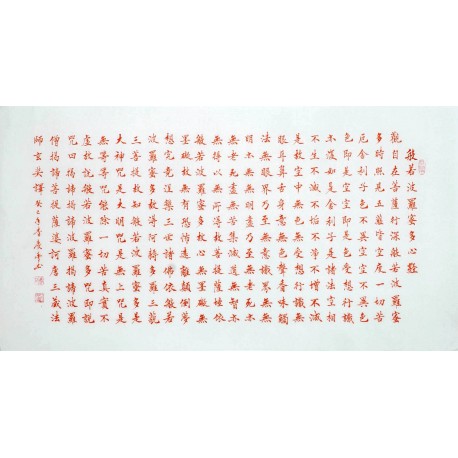 般若波羅蜜多心經
觀自在菩薩行深般若波羅蜜
多時照見五蘊皆空度一切苦
厄舍利子色不異空空不異色
色即是空空即是色受想行識
亦復如是舍利子是諸法空相
不生不滅不垢不淨不增不減
是故空中無色無受想行識無
眼耳鼻舌身意無色聲香味觸
法無眼界乃至無意識界無無
明亦無無明盡乃至無老死亦
無老死盡無苦集滅道無智亦
無得以無所得故菩提薩埵依
般若波羅蜜多故心無罣礙無
罣礙故無有恐怖遠離顛倒夢
想究竟涅槃三世諸佛依般若
波羅蜜多故得阿耨多羅三藐
三菩提故知般若波羅蜜多是
大神咒是大明咒是無上咒是
無等等咒能除一切苦真實不
虛故說般若波羅蜜多咒即說
咒曰揭諦揭諦波羅揭諦波羅
僧揭諦菩提薩婆訶唐三藏法
師玄奘譯 癸巳年春